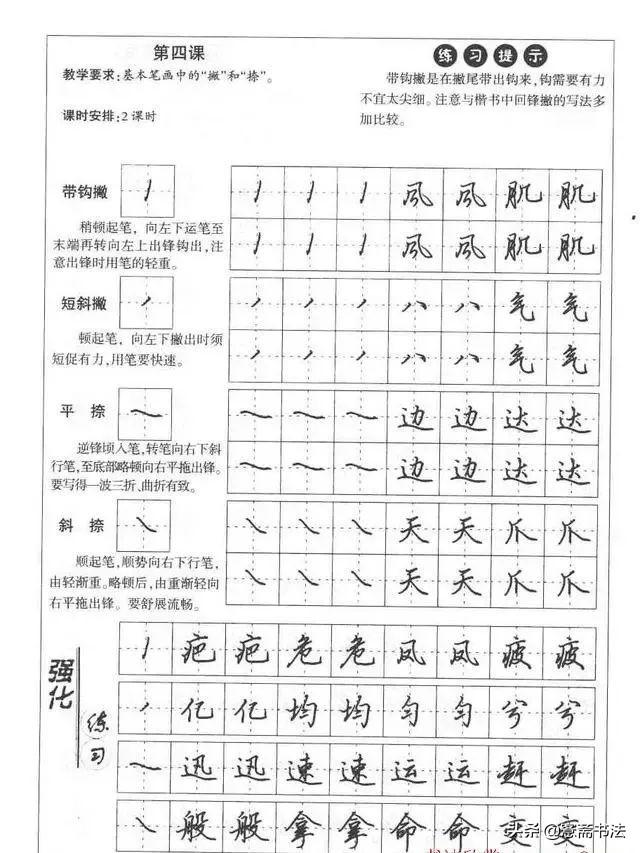 第四课
教学要求：基本笔画中的“撇”和“捺”。
课时安排：2课时
练习提示
带钩撇是在撇尾带出钩来，钩需要有力
不宜太尖细。注意与楷书中回锋撇的写法多
加比较。
带钩撇
稍顿起笔，向左下运笔至
末端再转向左上出锋钩出，注
意出锋时用笔的轻重。
風 風 肌 肌
風 風 肌 肌
短斜撇
顿起笔，向左下撇出时须
短促有力，用笔要快速。
八 八 气 气
八 八 气 气
平捺
逆锋顷入笔，转笔向右下斜
行笔，至底部略顿向右平拖出锋。
要写得一波三折、曲折有致。
边 边 达 达
边 边 达 达
斜捺
顺起笔，顺势向右下行笔，
由轻渐重。略顿后，由重渐轻向
右平拖出锋。要舒展流畅。
天 天 爪 爪
天 天 爪 爪
强化
练习
疤 疤 危 危 凤 凤 疲 疲
亿 亿 均 均 匀 匀 兮 兮
迅 迅 速 速 运 运 赶 赶
般 般 拿 拿 命 命 交 交
头条 @斋书法